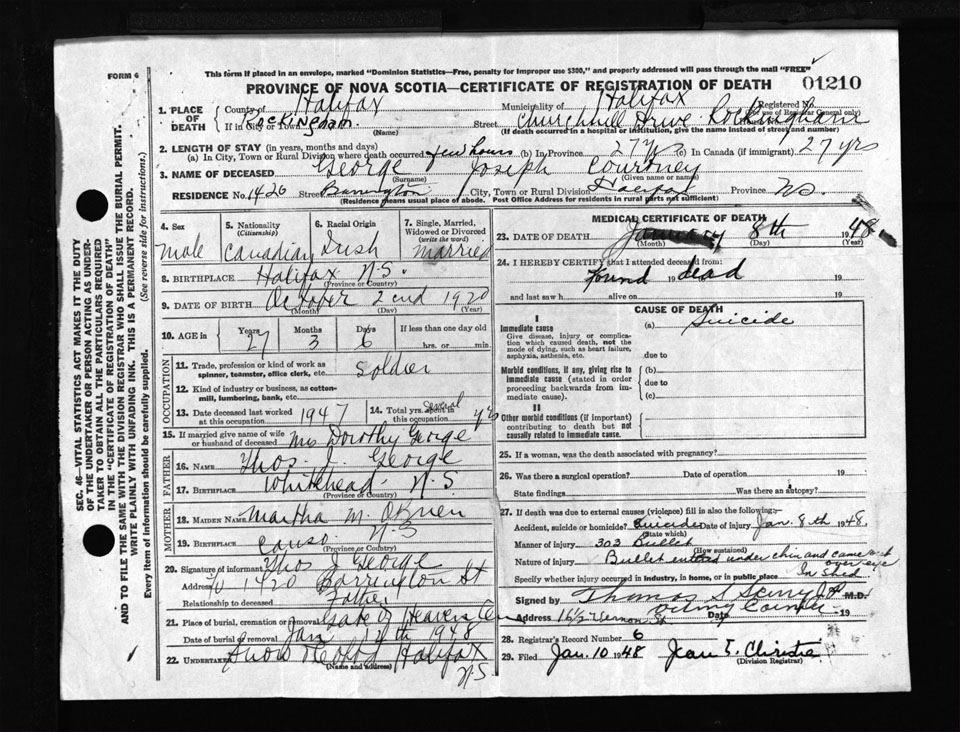 FORM 6
This form if placed in an envelope, marked "Dominion Statistics—Free, penalty for improper use $300," and properly addressed will pass through the mail "FREE"
PROVINCE OF NOVA SCOTIA—CERTIFICATE OF REGISTRATION OF DEATH
01210
1. PLACE OF DEATH
County of Halifax Municipality of Halifax Registered No.
(For use of Registrar General only)
If in City or Town Rockingham (Name) Street Churchhill Drive Rockingham
(If death occurred in a hospital or institution, give the name instead of street and number)
2. LENGTH OF STAY (in years, months and days)
(a) In City, Town or Rural Division where death occurred few hours (b) In Province 27 yrs (c) In Canada (if immigrant) 27 yrs
3. NAME OF DECEASED George Joseph Courtney
(Surname) (Given name or names)
RESIDENCE No. 1420 Street Barrington City, Town or Rural Division Halifax Province N.S.
(Residence means usual place of abode. Post Office Address for residents in rural parts not sufficient)
4. Sex
male
5. Nationality (Citizenship)
Canadian
6. Racial Origin
Irish
7. Single, Married, Widowed or Divorced (write the word)
Married
8. BIRTHPLACE Halifax N.S.
(Province or Country)
9. DATE OF BIRTH October 2nd 1920
(Month) (Day) (Year)
10. AGE in Years 27 Months 3 Days 6 If less than one day old
hrs. or min.
OCCUPATION
11. Trade, profession or kind of work as spinner, teamster, office clerk, etc. Soldier
12. Kind of industry or business, as cotton-mill, lumbering, bank, etc.
13. Date deceased last worked at this occupation 1947
14. Total yrs. spent in this occupation several yrs
15. If married give name of wife or husband of deceased Mrs Dorothy George
FATHER
16. NAME Thos. J. George
17. BIRTHPLACE Whitehead N.S.
(Province or Country)
MOTHER
18. MAIDEN NAME Martha M. O'Brien
19. BIRTHPLACE Canso N.S
(Province or Country)
20. Signature of informant Thos J George
Address 1420 Barrington St
Relationship to deceased Father
21. Place of burial, cremation or removal Gate of Heaven Cem
Date of burial or removal Jan 1948
22. UNDERTAKER Snow Halifax N.S
(Name and address)
MEDICAL CERTIFICATE OF DEATH
23. DATE OF DEATH January 8th 1948
(Month) (Day) (Year)
24. I HEREBY CERTIFY that I attended deceased from:
Found 19 dead 19
and last saw h alive on 19
CAUSE OF DEATH
I
Immediate cause
Give disease, injury or complication which caused death, not the mode of dying, such as heart failure, asphyxia, asthenia, etc.
(a) Suicide
due to
Morbid conditions, if any, giving rise to immediate cause (stated in order proceeding backwards from immediate cause).
(b)
due to
(c)
II
Other morbid conditions (if important) contributing to death but not causally related to immediate cause.
25. If a woman, was the death associated with pregnancy?
26. Was there a surgical operation? Date of operation 19
State findings Was there an autopsy?
27. If death due to external causes (violence) fill in also the following:—
Accident, suicide or homicide? Suicide Date of injury Jan. 8th 1948.
(State which)
Manner of injury 303 Bullet
(How sustained)
Nature of injury Bullet entered under chin and came out over eye
Specify whether injury occurred in industry, in home, or in public place In Shed
Signed by Thomas S M.D.
Address 16½ Vernon St Date 19
28. Registrar's Record Number 6
29. Filed Jan. 10 1948 Jean E. Christie
(Division Registrar)
SEC. 46—VITAL STATISTICS ACT MAKES IT THE DUTY
OF THE UNDERTAKER OR PERSON ACTING AS UNDER-
TAKER TO OBTAIN ALL THE PARTICULARS REQUIRED
IN THE "CERTIFICATE OF REGISTRATION OF DEATH"
AND TO FILE THE SAME WITH THE DIVISION REGISTRAR WHO SHALL ISSUE THE BURIAL PERMIT.
WRITE PLAINLY WITH UNFADING INK. THIS IS A PERMANENT RECORD.
Every item of information should be carefully supplied. (See reverse side for instructions.)